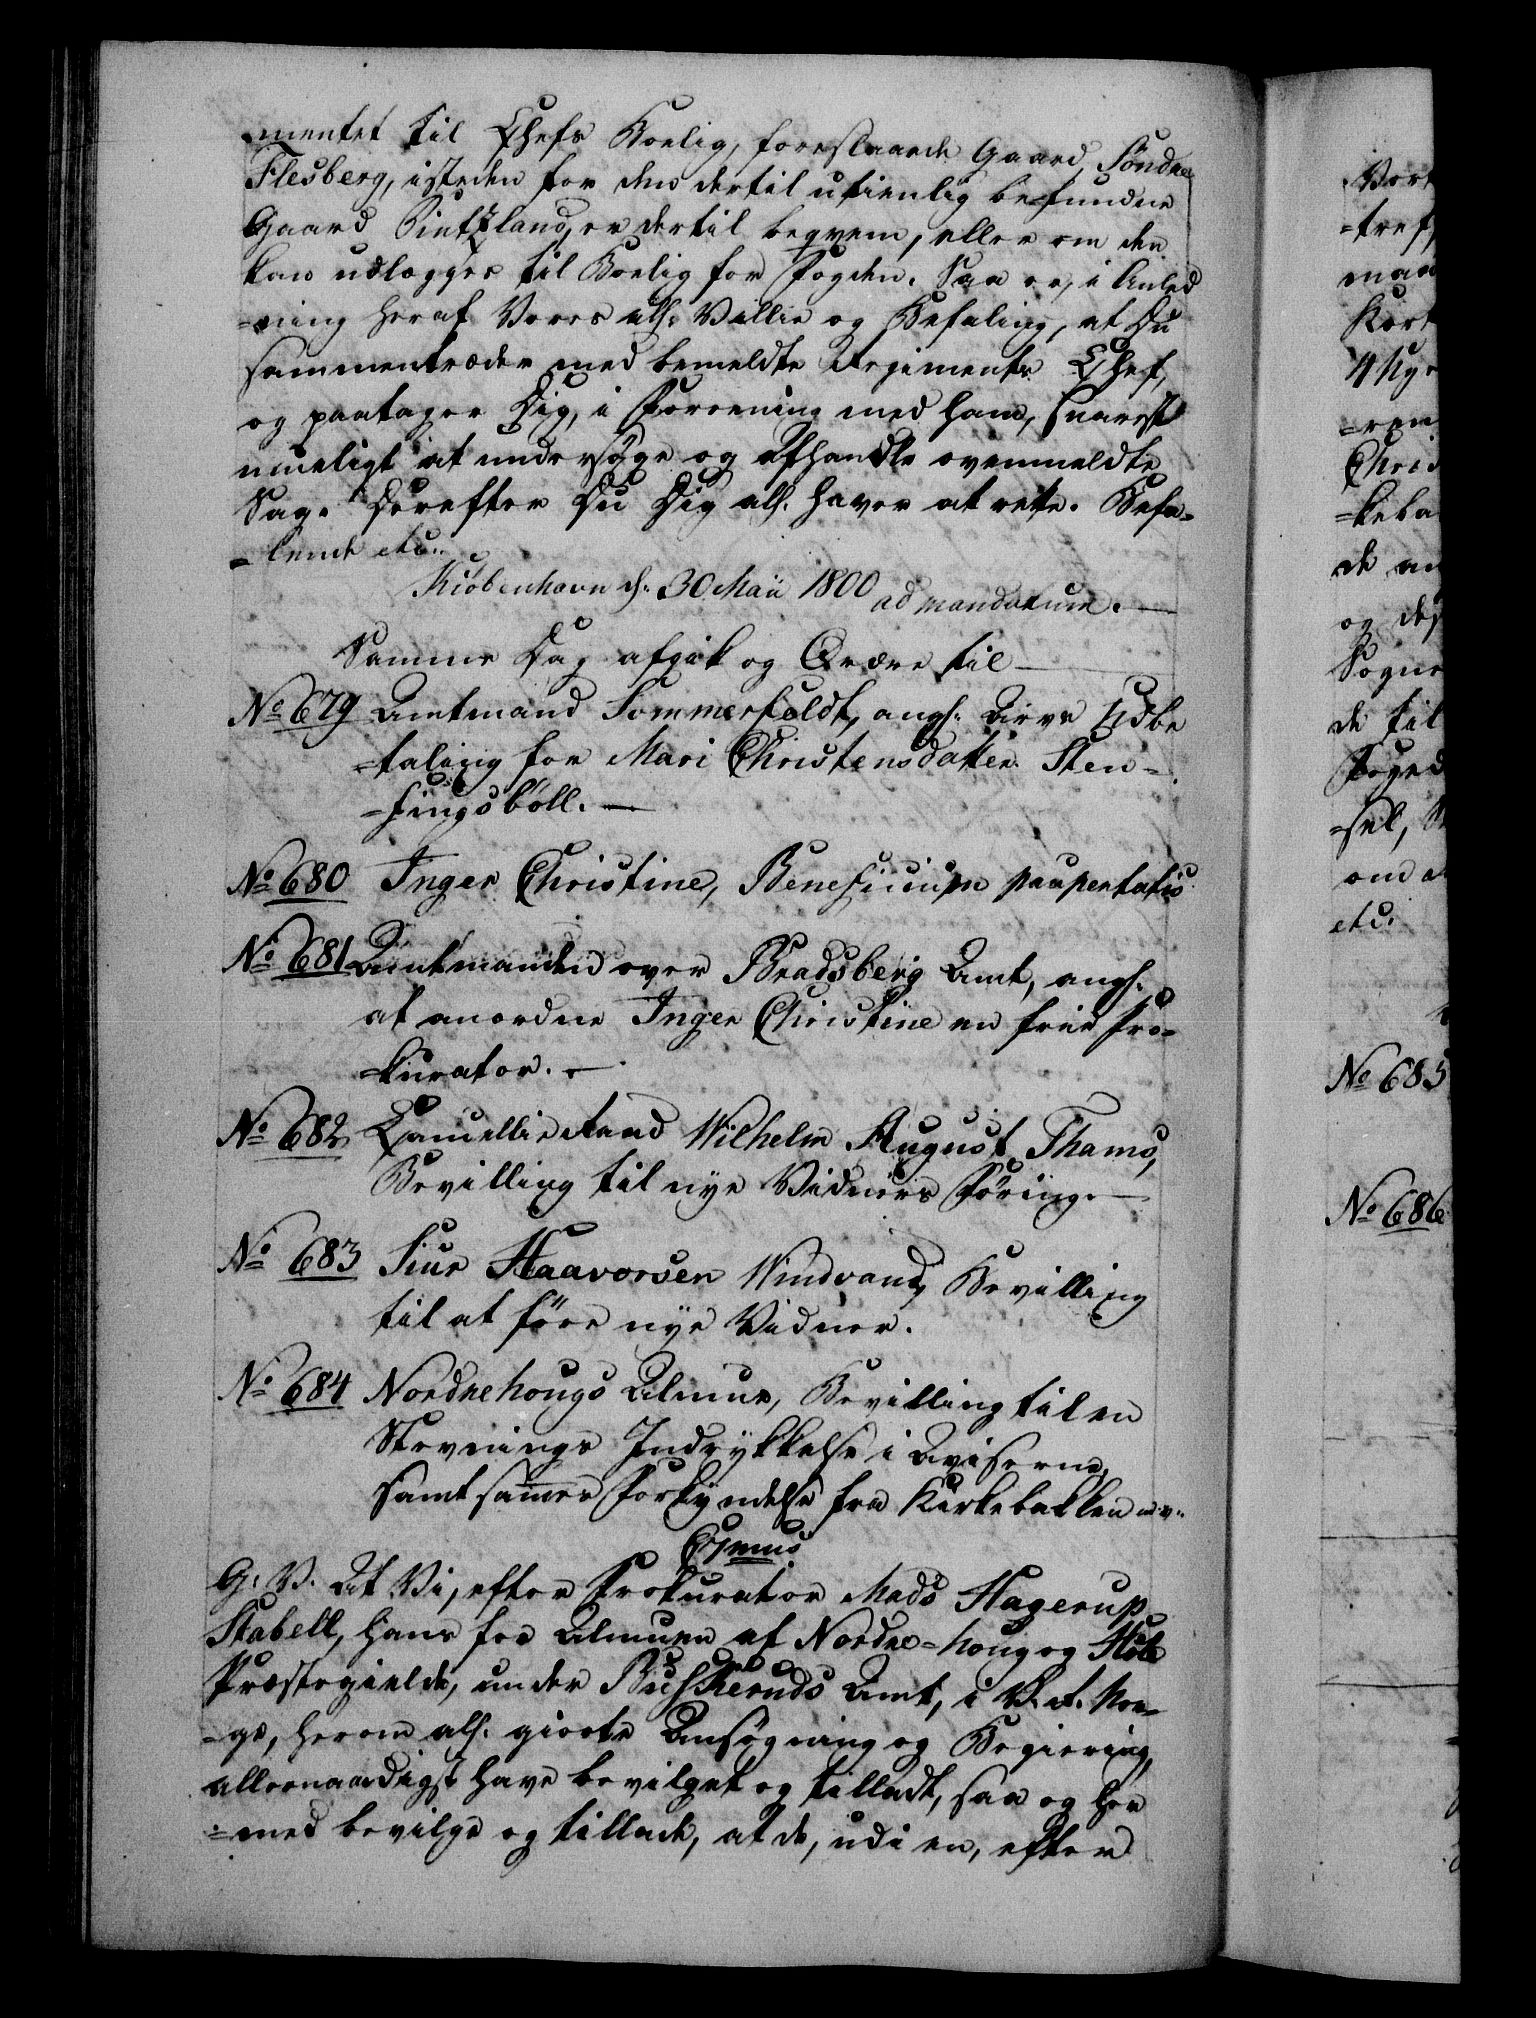 mentet til Chefs Boelig, foreslaaede Gaard Söndre
Flesberg, isteden for den dertil utienlig befundne
Gaard er dertil beqvem, eller om den
kan udlægges til Boelig for Fogden. Saa er, i Anled
-ning heraf Vores alh: Villie og Befaling, at Du
sammentræder med bemeldte Regiments Chef,
og paatager Dig, i Foreening med ham, snarest
mueligt at undersöge og afhandle ovenmeldte
Sag. Derefter Du Dig alh. haver at rette. Befa-
-lende etc:
Kiöbenhavn d: 30 Maii 1800 ad mandatum.
Samme Dag afgik og Ordre til
No 679 Amtmand Sommerfeldt, angh: Arve Udbe
-taling for Mari Christensdatter Sten-
-singsböll.
No 680 Inger Christine, Beneficium paupertatis
No 681 Amtmanden over Bradsberg Amt, angh:
at anordne Inger Christine en frie Pro-
-kurator.
No 682 Cancellieraad Wilhelm August Thams,
Bevilling til nye Vidners Föring.
No 683 Siur Haavorsen Windvand, Bevilling
til at före nye Vidner.
No 684 Nordrehougs Almue, Bevilling til en
Stevnings Indrykkelse i Aviserne,
samt sammes Forkyndelse fra Kirkebakken m:v:
G: V. At Vi, efter Prokurator Mads Hagerup
Stabell, hans for Almuen af Nordre-houg og Hole
Præstegielde, under Buskeruds Amt, i V. R. Nor-
-ge, herom alh. giorte Ansögning og Begiering,
allernaadigst have bevilget og tilladt, saa og her
-med bevilge og tillade, at de, udi en, efter
Vort
-tref
maa
Kort
-ren
Chris
-keba
de an
og des
Sogne
de til
Foged
-sel,
om a
etc.
No 685
No 686